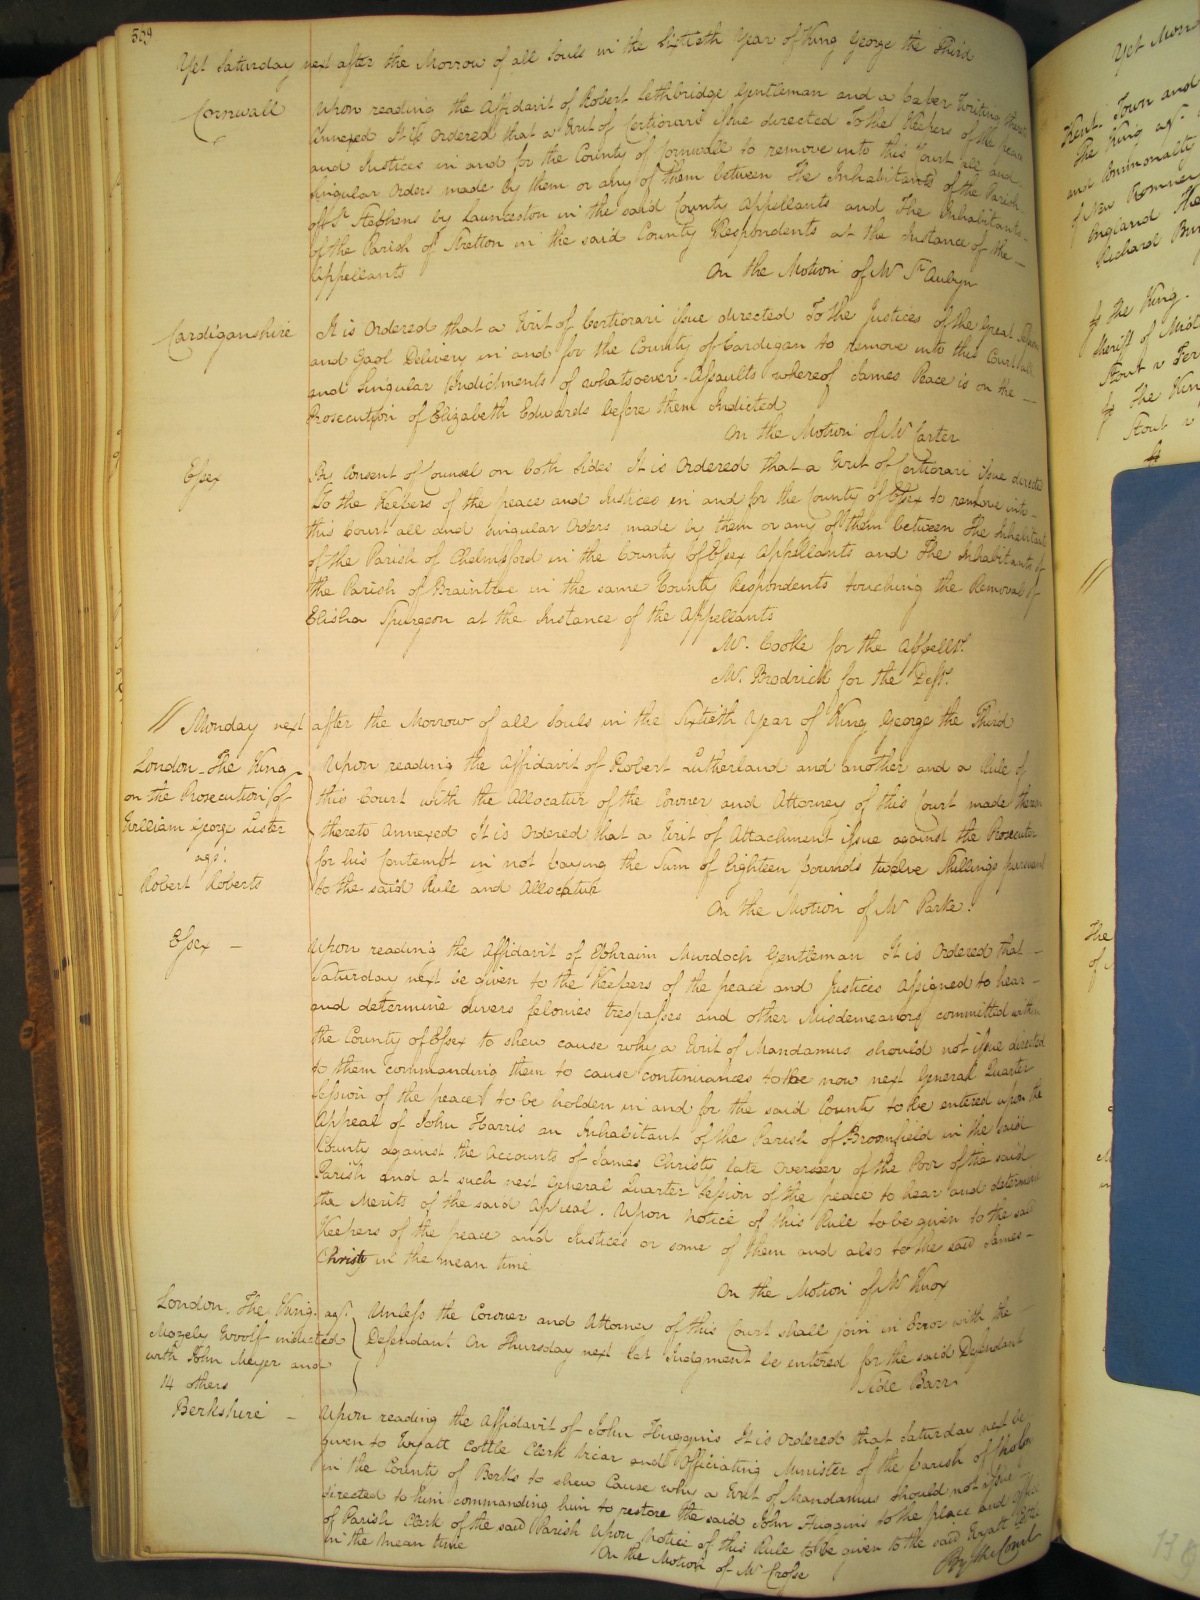 569
Yet Saturday next after the Morrow of all Souls in the Sixtieth Year of King George the Third
Cornwall
Upon reading the Affidavit of Robert Lethbridge Gentleman and a Paper Writing thereto
Annexed It is Ordered that a Writ of Certiorari issue directed To the Keepers of the peace
and Justices in and for the County of Cornwall to remove into this Court all and
singular Orders made by them or any of them between The Inhabitants of the Parish
of St. Stephens by Launceston in the said County Appellants and The Inhabitants
of the Parish of Stretton in the said County Respondents at the Instance of the
Appellants
On the Motion of Mr St. Aubyn
Cardiganshire
It is Ordered that a Writ of Certiorari issue directed To the Justices of the Great Session
and Gaol Delivery in and for the County of Cardigan to remove into this Court all
and Singular Indictments of whatsoever Assaults whereof James Peace is on the
Prosecution of Elizabeth Edwards before them Indicted
On the Motion of Mr Carter
Essex
By Consent of Counsel on both Sides It is Ordered that a Writ of Certiorari issue directed
To the Keepers of the peace and Justices in and for the County of Essex to remove into
this Court all and singular Orders made by them or any of them between The Inhabitants
of the Parish of Chelmsford in the County of Essex Appellants and The Inhabitants of
the Parish of Braintree in the same County Respondents touching the Removal of
Elisha Spurgeon at the Instance of the Appellants
Mr. Cooke for the Appellts.
Mr. Brodrick for the Defts.
// Monday next after the Morrow of all Souls in the Sixtieth Year of King George the Third
London The King
on the Prosecution of
William George Lester
agst.
Robert Roberts
Upon reading the Affidavit of Robert Sutherland and another and a Rule of
this Court with the Allocatur of the Coroner and Attorney of this Court made thereon
thereto annexed It is Ordered that a Writ of Attachment issue against the Prosecutor
for his Contempt in not paying the Sum of Eighteen pounds twelve Shillings pursuant
to the said Rule and Allocatur
On the Motion of Mr Parke.
Essex
Upon reading the Affidavit of Ephraim Murdoch Gentleman It is Ordered that
Saturday next be given to the Keepers of the peace and Justices Assigned to hear
and determine divers felonies trespasses and other Misdemeanors committed within
the County of Essex to shew cause why a Writ of Mandamus should not issue directed
to them commanding them to cause continuances to the now next General Quarter
Session of the peace to be holden in and for the said County to be entered upon the
Appeal of John Harris an Inhabitant of the Parish of Broomfield in the said
County against the Accounts of James Christy late Overseer of the Poor of the said
Parish and at such next General Quarter Session of the peace to hear and determine
the Merits of the said Appeal. Upon Notice of this Rule to be given to the said
Keepers of the peace and Justices or some of them and also to the said James
Christy in the mean time
On the Motion of Mr Knox
London. The King agst.
Mozely Woolf indicted
with John Meyer and
14 others
Unless the Coroner and Attorney of this Court shall join in Error with the
Defendant On Thursday next let Judgment be entered for the said Defendant
Side Barr
Berkshire
Upon reading the Affidavit of John Huggins It is Ordered that Saturday next be
given to Wyatt Cottle Clerk Vicar and Officiating Minister of the Parish of
in the County of Berks to shew Cause why a Writ of Mandamus should not issue
directed to him commanding him to restore the said John Huggins to the place and Office
of Parish Clerk of the said Parish Upon Notice of this Rule to be given to the said Wyatt Cottle
in the mean time
On the Motion of Mr Crosse
By the Court
Yet Mon
Kent. Town and
The King agst.
and Commonalty
of New Romney
England The
Richard Bu
The King
Sheriff of Midd
Stout v Fer
The Kin
Stout v
the
of
138